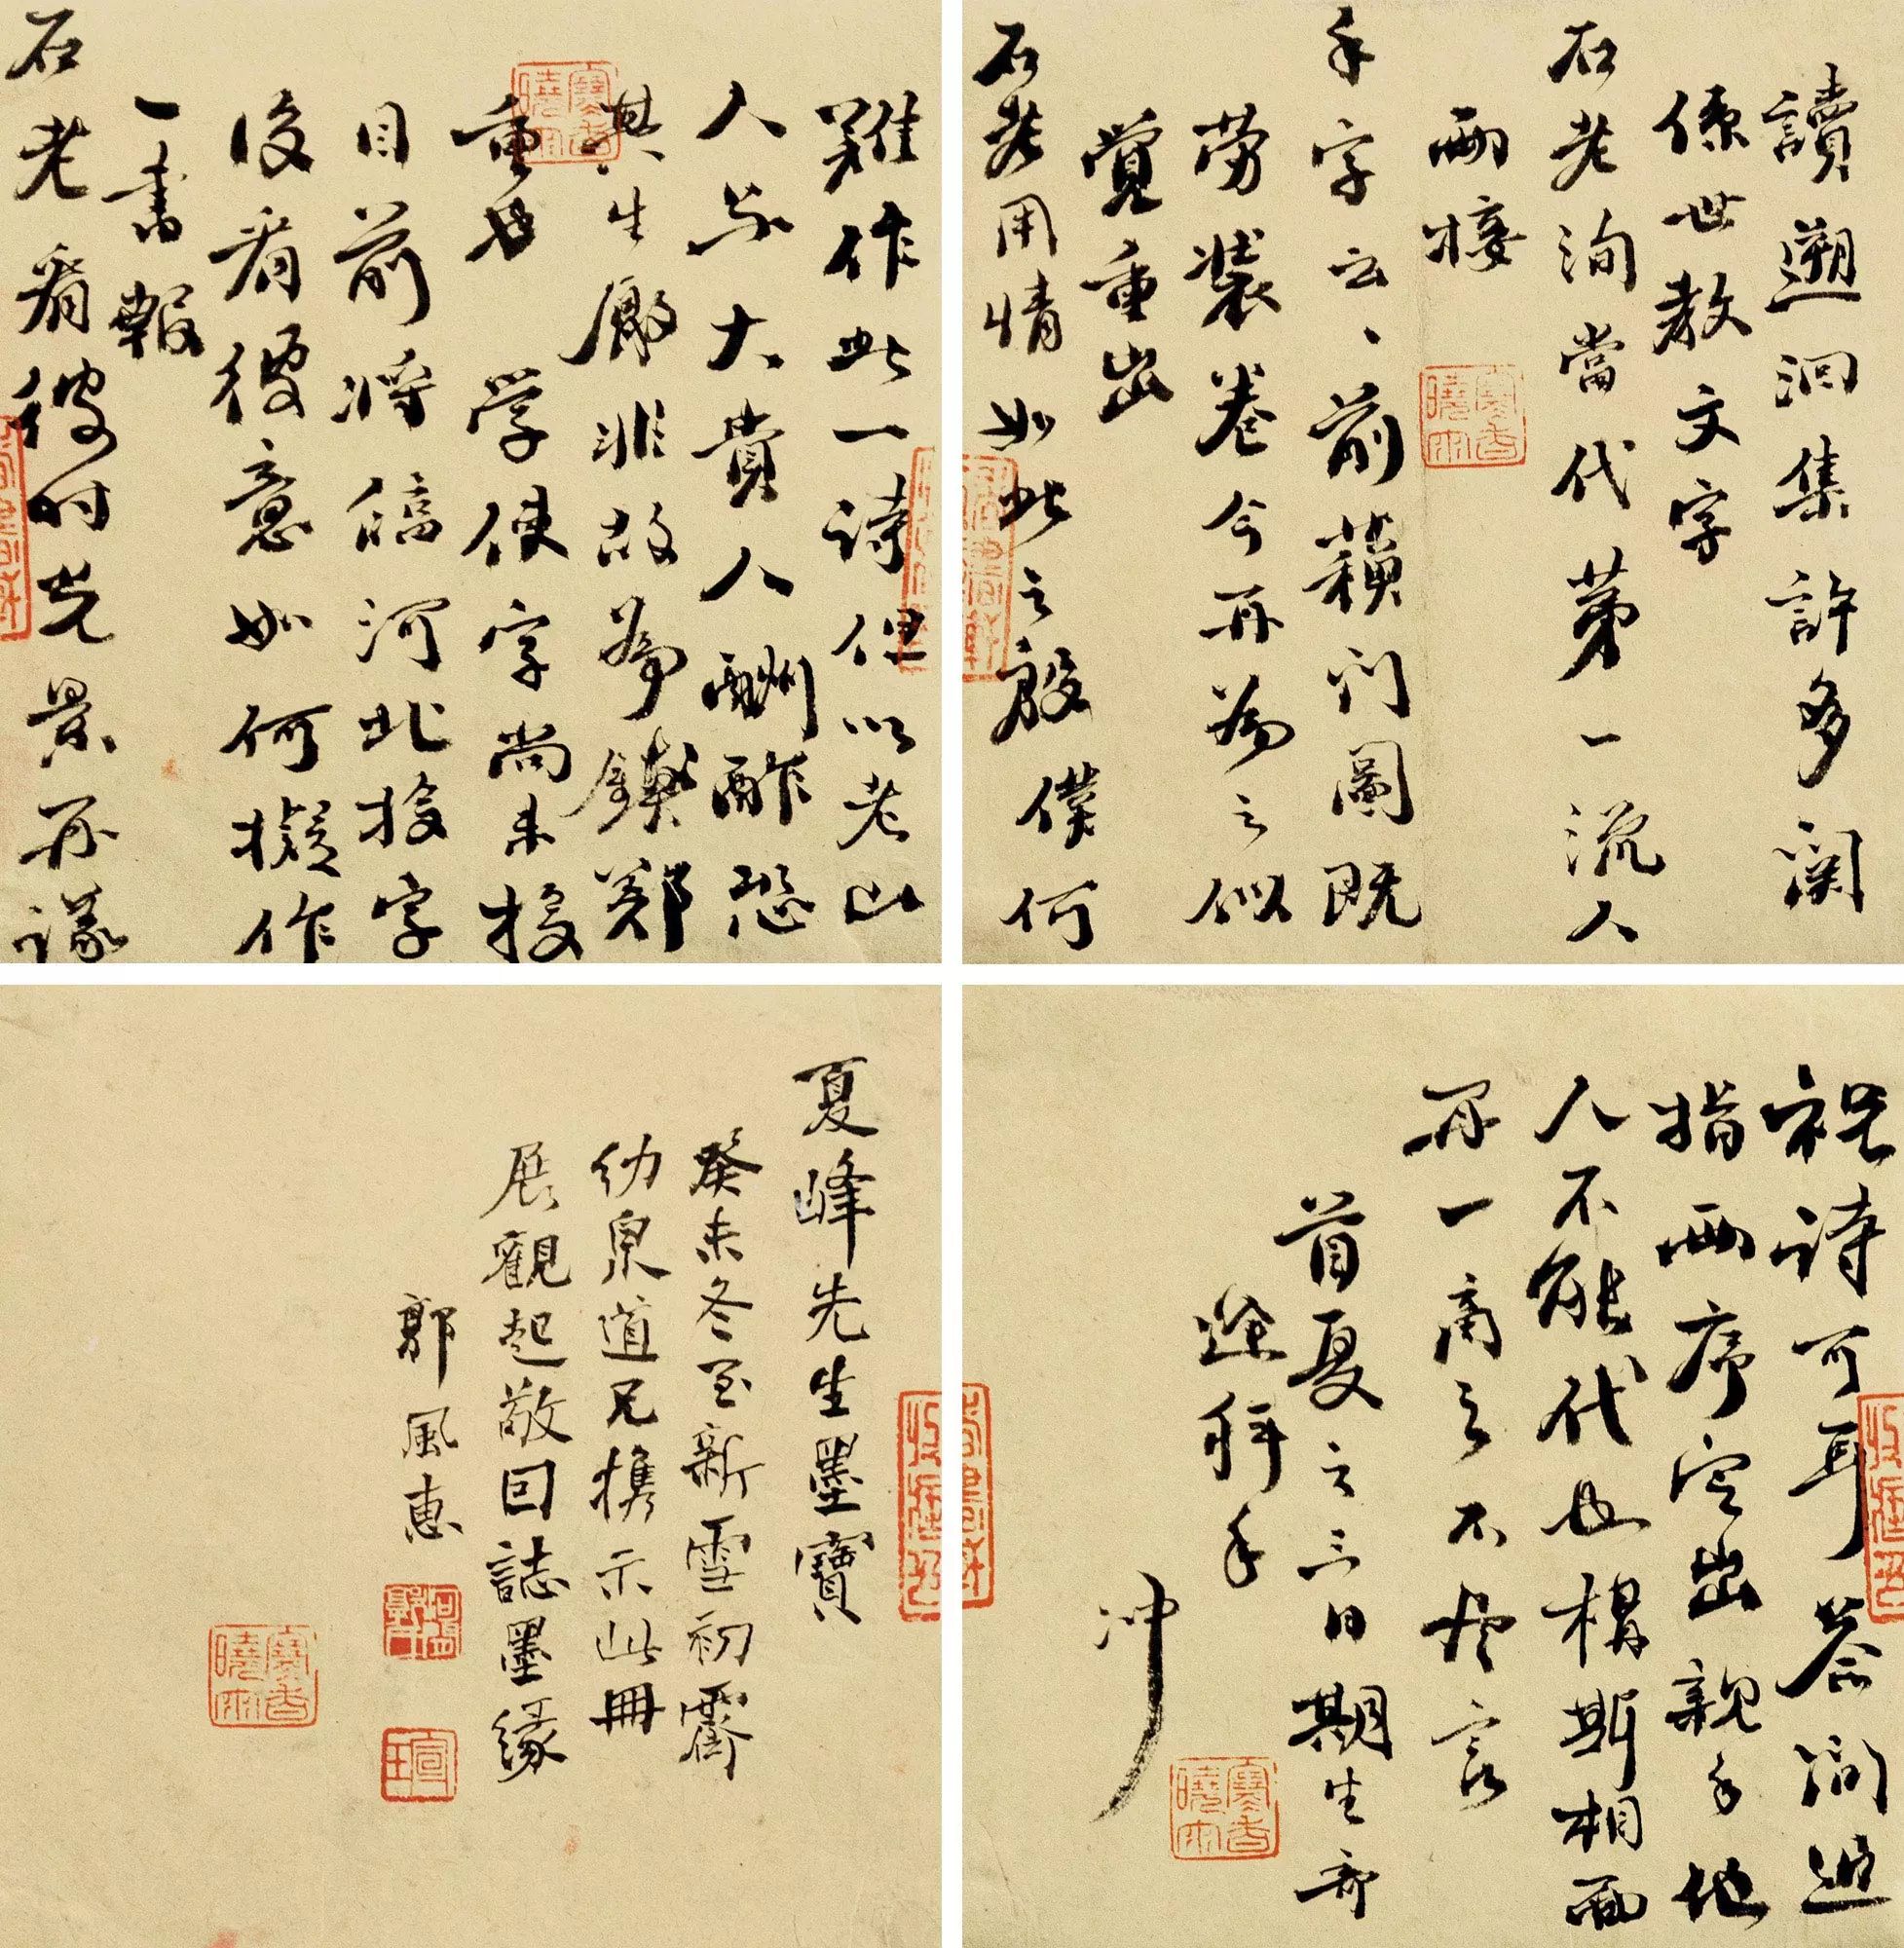 讀遡洄集許多闗
係世教文字
石老洵當代第一流人
兩接
手字云、前蘋門圖既
勞裝卷今再為之似
覺重出
石老用情如此之殷僕何
難作此一詩但以老山
人與大貴人酬酢恐
其生厭非故為鄭
重也學使字尚未投
目前將臨河北投字
後看彼意如何擬作
一書報
石老看彼時光景再議
祝詩可耳答問近
指兩序定出親手他
人不能代也構斯相面
再一商之不盡言
首夏之三日期生弟
逄拜手
冲
夏峰先生墨寶
癸未冬至新雪初霽
幼泉道兄攜示此冊
展觀起敬因誌墨緣
郭風惠
寒香曉雨